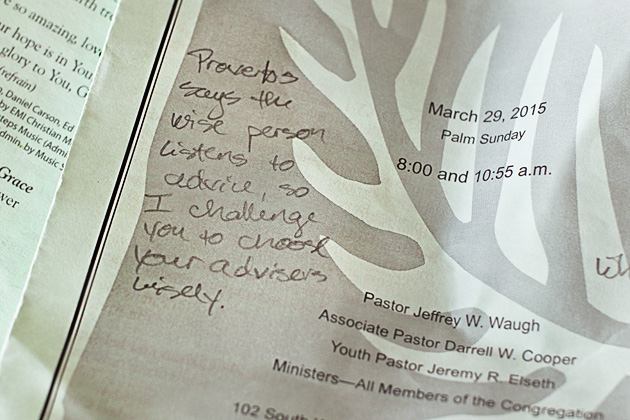 so amazing, lov
ur hope is in You
glory to You, G
(refrain)
Daniel Carson, Ed
by EMI Christian M
steps Music (Admi
admin. by Music S
Grace
wer
Proverbs
says the
wise person
listens to
advice, so
I challenge
you to choose
your advisers
wisely.
March 29, 2015
Palm Sunday
8:00 and 10:55 a.m.
Pastor Jeffrey W. Waugh
Associate Pastor Darrell W. Cooper
Youth Pastor Jeremy R. Elseth
Ministers—All Members of the Congregation
102 South